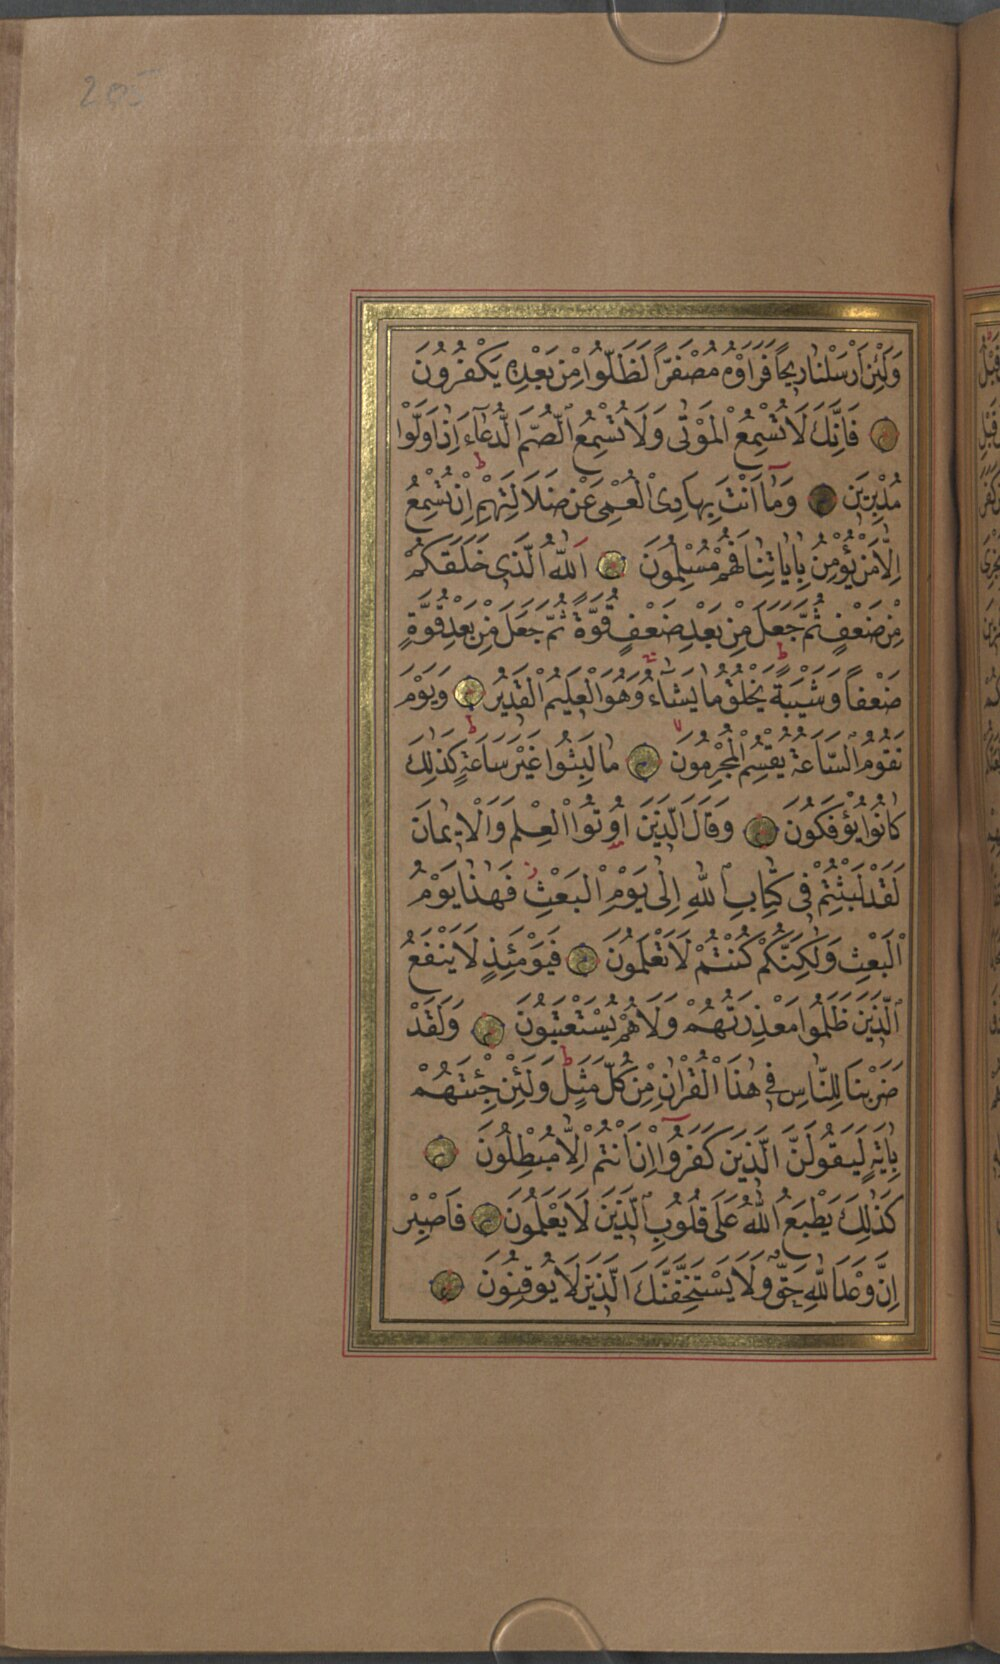 205
وَلَئِنْ اَرْسَلْنَا رٖيحاً فَرَاَوْهُ مُصْفَرّاً لَظَلُّوا مِنْ بَعْدِهٖ يَكْفُرُونَ
فَاِنَّكَ لَا تُسْمِعُ الْمَوْتٰى وَلَا تُسْمِعُ الصُّمَّ الدُّعَٓاءَ اِذَا وَلَّوْا
مُدْبِرٖينَ وَمَٓا اَنْتَ بِهَادِى الْعُمْيِ عَنْ ضَلَالَتِهِمْ اِنْ تُسْمِعُ
اِلَّا مَنْ يُؤْمِنُ بِاٰيَاتِنَا فَهُمْ مُسْلِمُونَ اَللّٰهُ الَّذٖى خَلَقَكُمْ
مِنْ ضَعْفٍ ثُمَّ جَعَلَ مِنْ بَعْدِ ضَعْفٍ قُوَّةً ثُمَّ جَعَلَ مِنْ بَعْدِ قُوَّةٍ
ضَعْفاً وَشَيْبَةً يَخْلُقُ مَا يَشَٓاءُ وَهُوَ الْعَلٖيمُ الْقَدٖيرُ وَيَوْمَ
تَقُومُ السَّاعَةُ يُقْسِمُ الْمُجْرِمُونَ مَا لَبِثُوا غَيْرَ سَاعَةٍ كَذٰلِكَ
كَانُوا يُؤْفَكُونَ وَقَالَ الَّذٖينَ اُوتُوا الْعِلْمَ وَالْاٖيمَانَ
لَقَدْ لَبِثْتُمْ فٖى كِتَابِ اللّٰهِ اِلٰى يَوْمِ الْبَعْثِ فَهٰذَا يَوْمُ
الْبَعْثِ وَلٰكِنَّكُمْ كُنْتُمْ لَا تَعْلَمُونَ فَيَوْمَئِذٍ لَا يَنْفَعُ
الَّذٖينَ ظَلَمُوا مَعْذِرَتُهُمْ وَلَا هُمْ يُسْتَعْتَبُونَ وَلَقَدْ
ضَرَبْنَا لِلنَّاسِ فٖى هٰذَا الْقُرْاٰنِ مِنْ كُلِّ مَثَلٍ وَلَئِنْ جِئْتَهُمْ
بِاٰيَةٍ لَيَقُولَنَّ الَّذٖينَ كَفَرُٓوا اِنْ اَنْتُمْ اِلَّا مُبْطِلُونَ
كَذٰلِكَ يَطْبَعُ اللّٰهُ عَلٰى قُلُوبِ الَّذٖينَ لَا يَعْلَمُونَ فَاصْبِرْ
اِنَّ وَعْدَ اللّٰهِ حَقٌّ وَلَا يَسْتَخِفَّنَّكَ الَّذٖينَ لَا يُوقِنُونَ